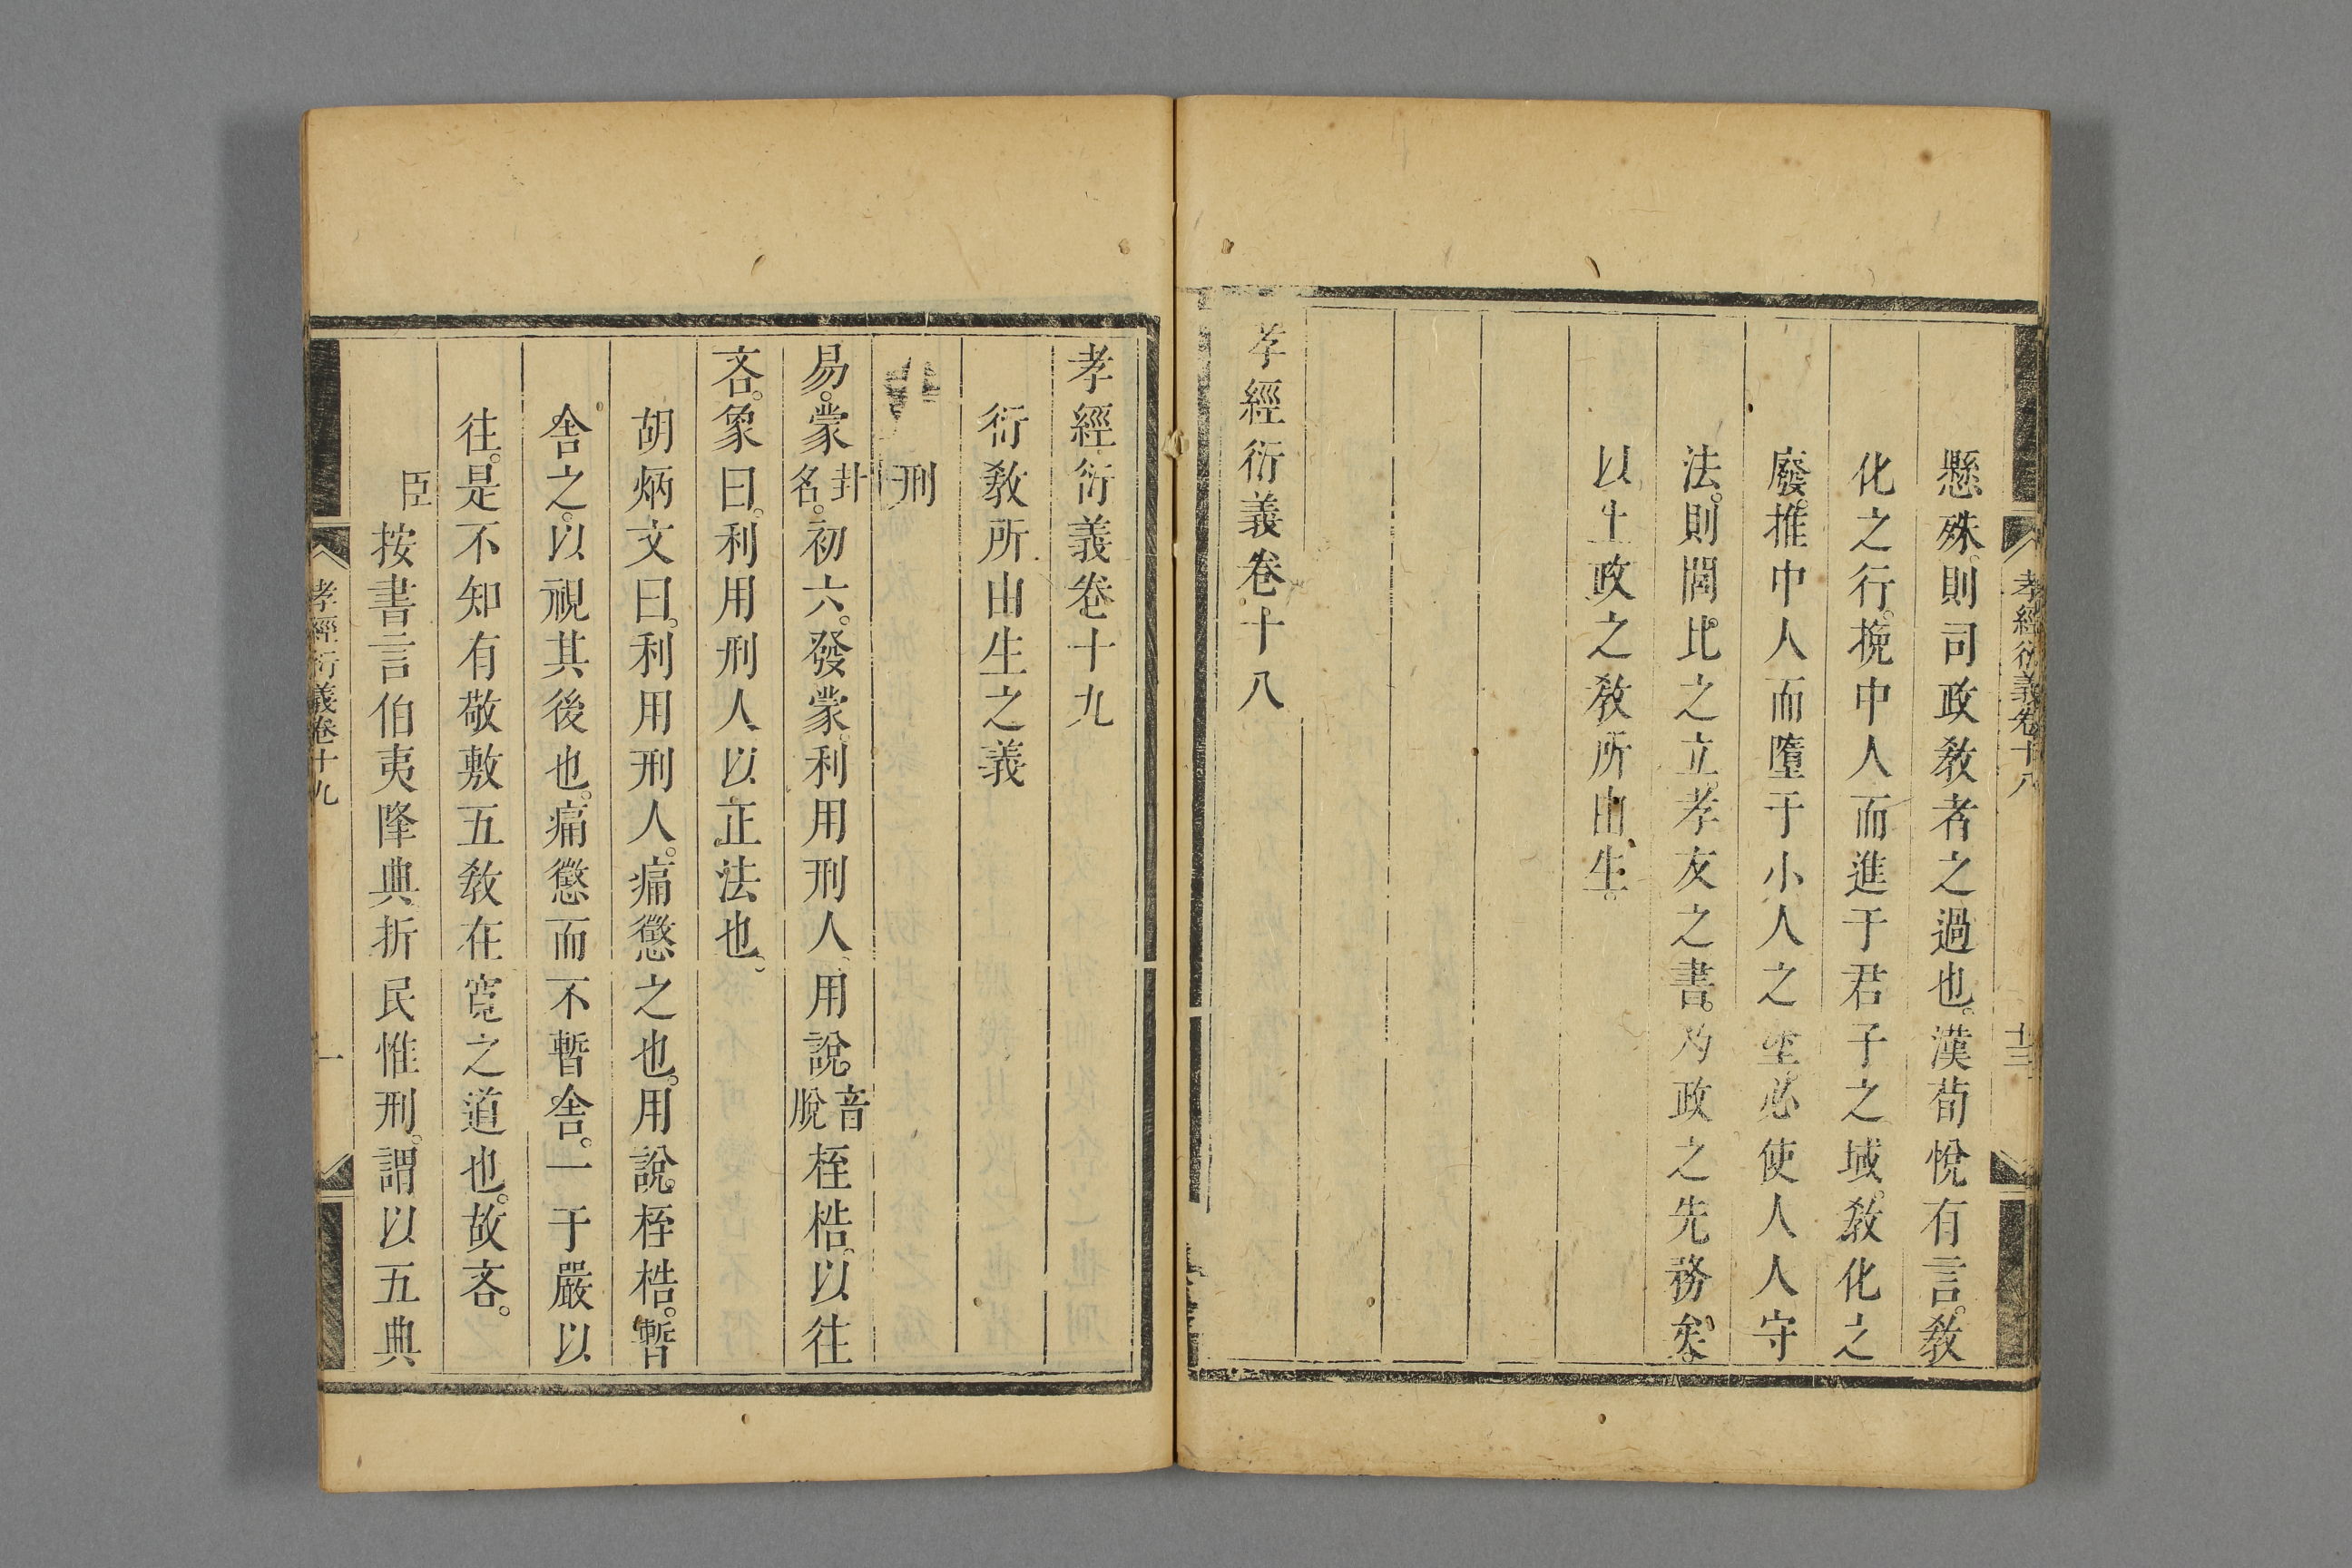 孝經衍義卷十八
十三
懸殊則司政教者之過也漢荀悅有言教
化之行挽中人而進于君子之域教化之
廢推中人而墮于小人之塗必使人人守
法則閭比之立孝友之書乃政之先務矣
以上政之教所由生
孝經衍義卷十八
孝經衍義卷十九
衍教所由生之義
刑
易蒙卦名初六發蒙利用刑人用說音脫桎梏以往
吝象曰利用刑人以正法也
胡炳文曰利用刑人痛懲之也用說桎梏暫
舍之以視其後也痛懲而不暫舍一于嚴以
往是不知有敬敷五教在寬之道也故吝
臣按書言伯夷降典折民惟刑謂以五典
孝經衍義卷十九
一